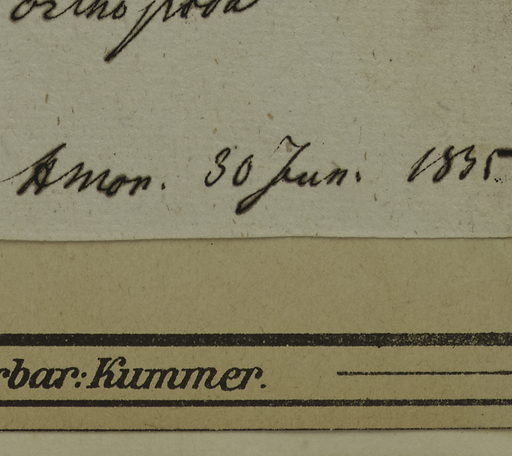 orthopoda
Amon. 30 Jun. 1835
rbar: Kummer.